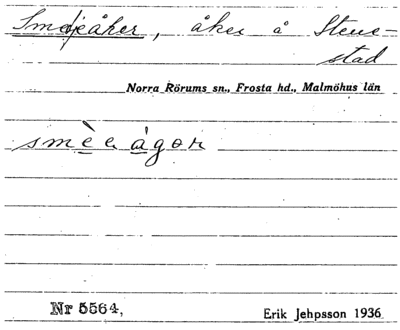 Smedjeåker, åker å Stene-
stad
Norra Rörums sn., Frosta hd., Malmöhus län
smèe ågor
Nr 5564,
Erik Jehpsson 1936